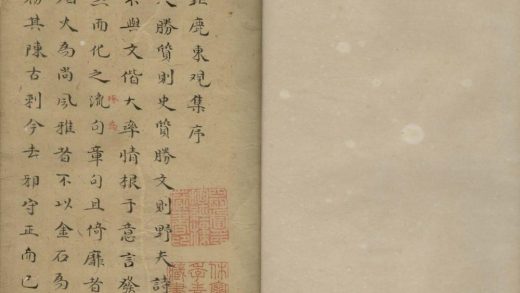 鹿東觀集序
勝質則史質勝文則野夫詩
不與文偕大率情根于意言發
而化之流句章句且倚靡者
火為尚風雅者不以金石為
務其陳古刺今去邪守正而已